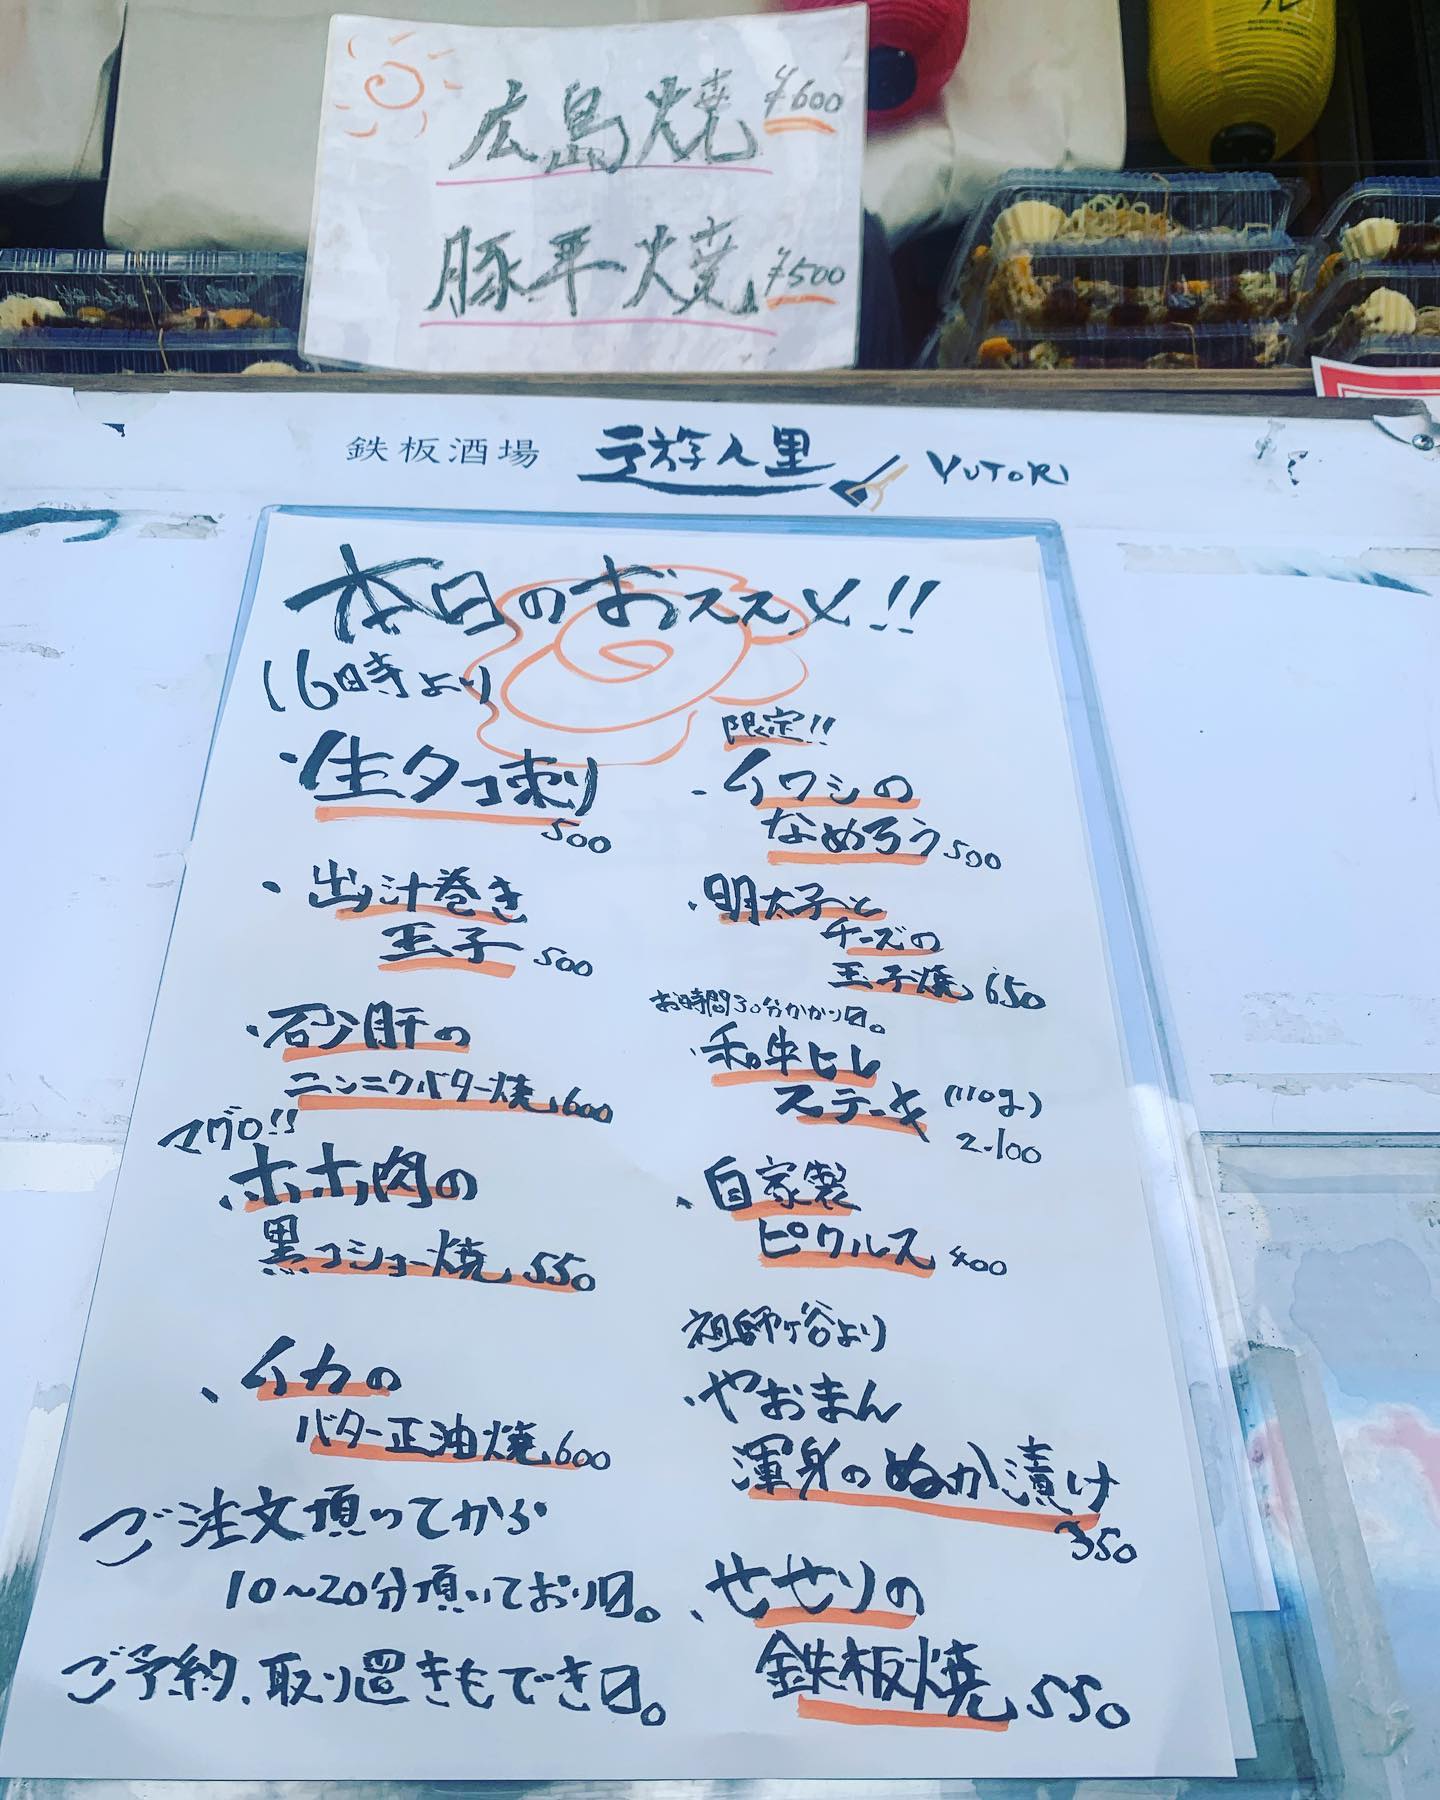 広島焼 ¥600
豚平焼 ¥500
鉄板酒場 遊人里 YUTORI
本日のおススメ!!
16時より
・生タコ刺し
500
・出し汁巻き
玉子 500
・砂肝の
ニンニクバター焼 600
マグロ!!
・ホホ肉の
黒コショー焼 550
・イカの
バター正油焼 600
ご注文頂いてから
10〜20分頂いております。
ご予約、取り置きもできます。
限定!!
・イワシの
なめろう 500
・明太子と
チーズの
玉子焼 650
お時間30分かかります。
・和牛ヒレ
ステーキ (110g)
2.100
・自家製
ピクルス 400
祖師ヶ谷より
・やおまん
渾身のぬか漬け
350
・せせりの
鉄板焼 550